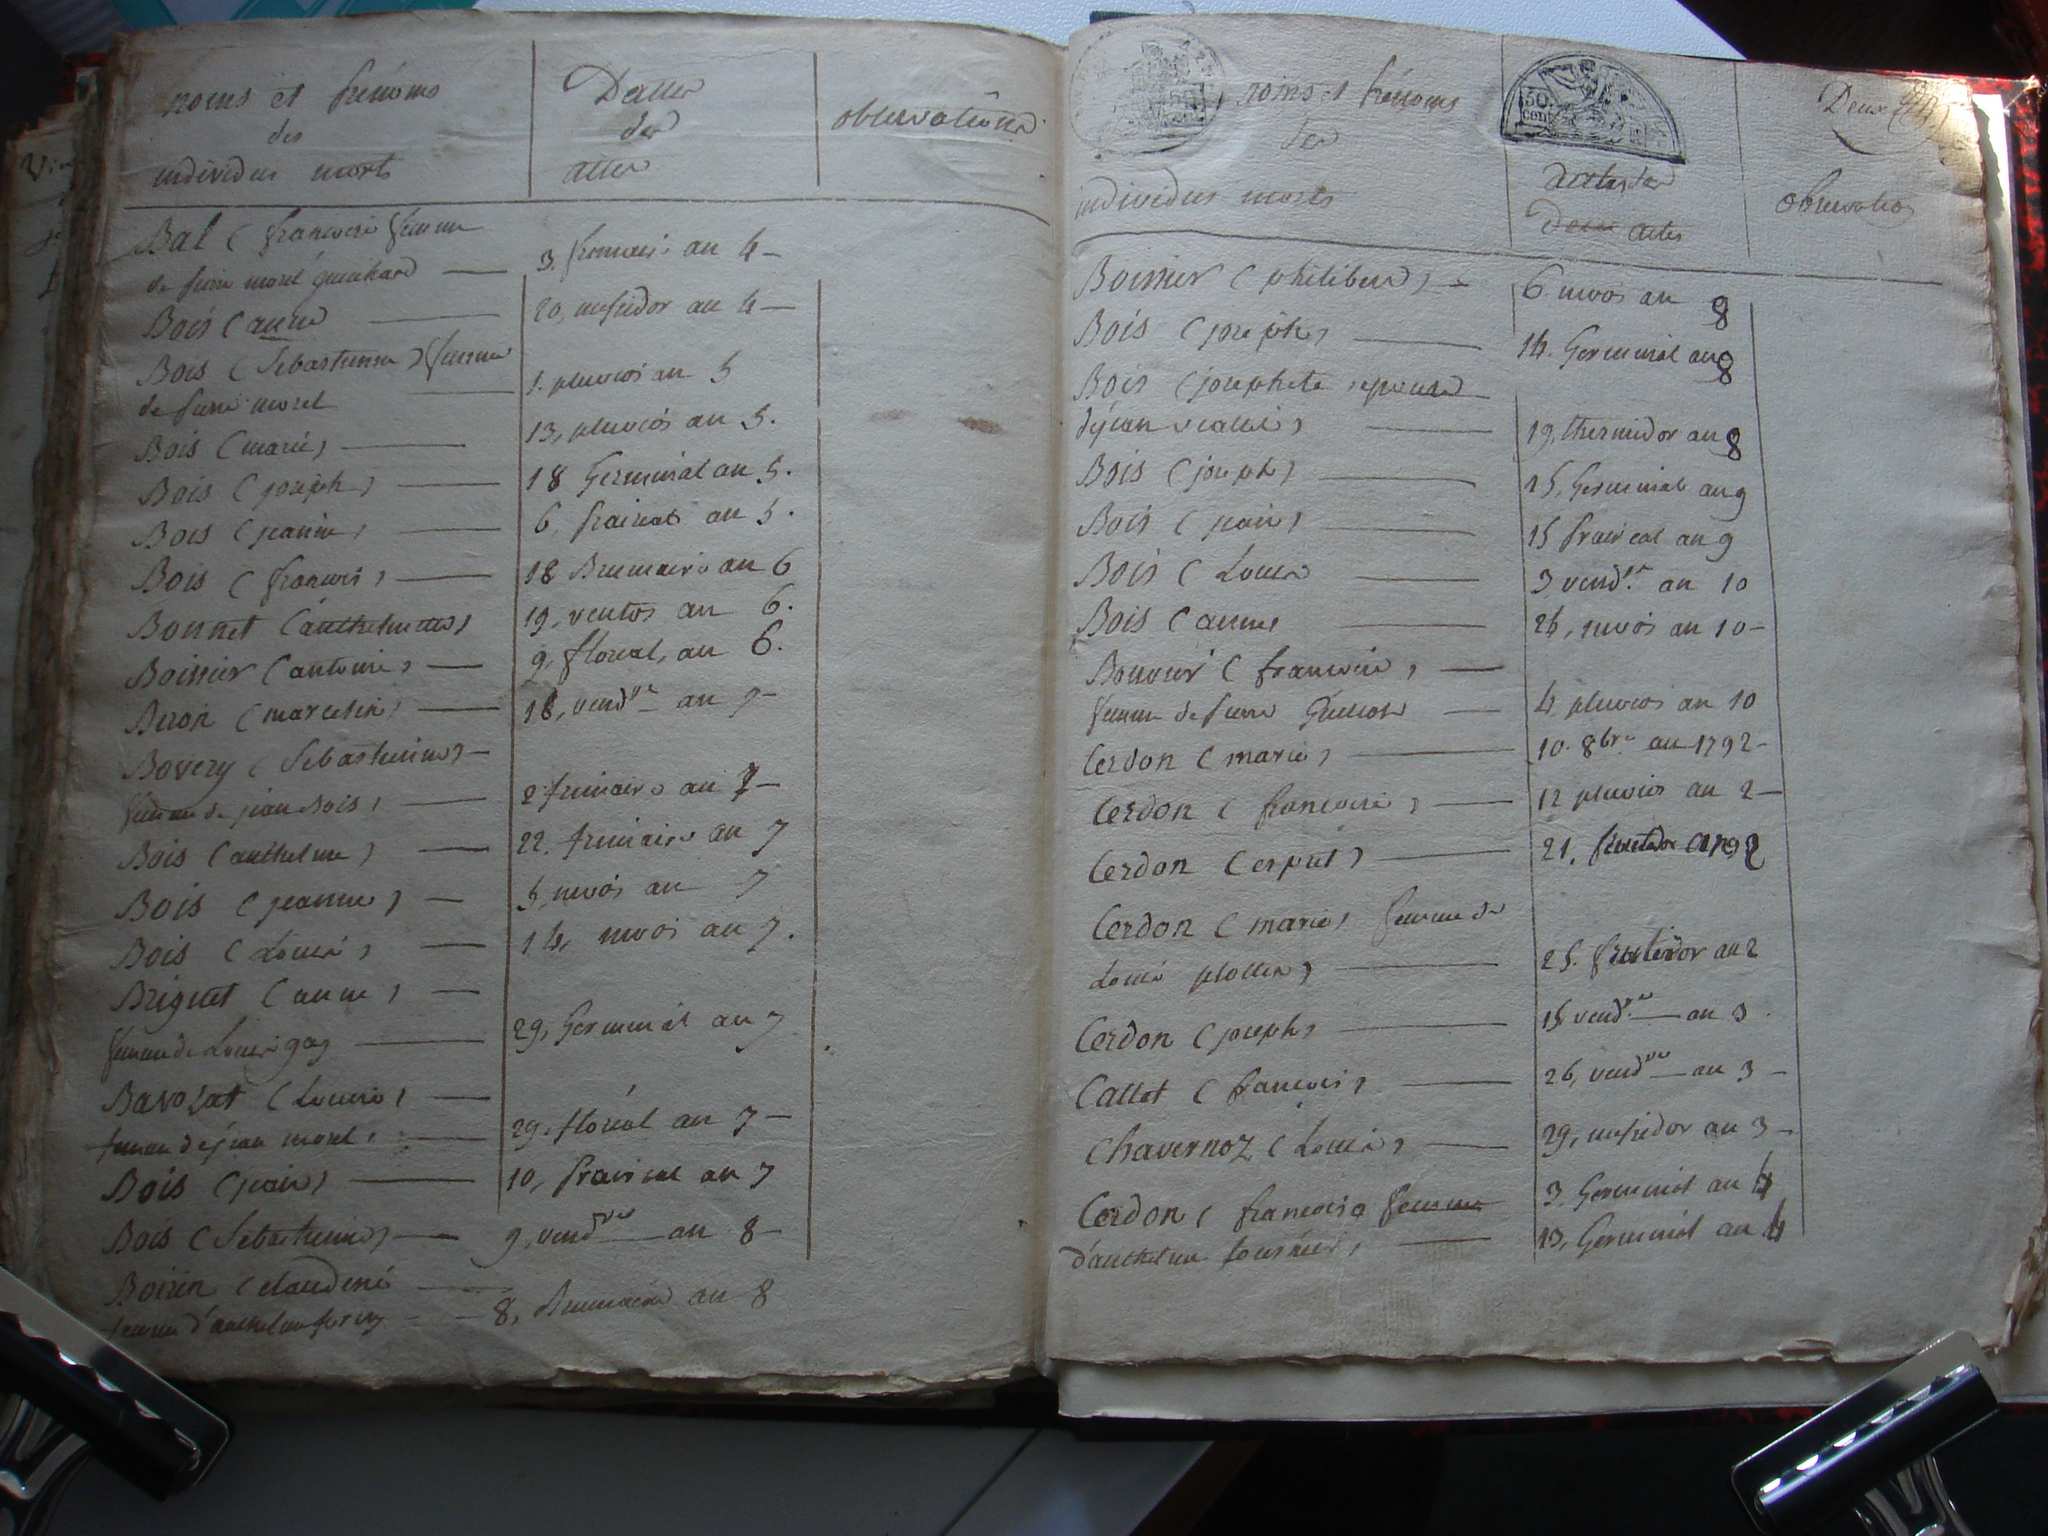 noms et prénoms
des
individus morts
Dattes
des
attes
observations
Bal (françoise femme
de pierre morel
3, frimaire an 4
Bois (anne
20, messidor an 4
Bois (Sebastienne) femme
de pierre morel
1. pluviôs an 5
Bois (marie)
13, pluviôs an 5.
Bois (joseph)
18 Germinal an 5.
Bois (jeanne)
6, prairial an 5.
Bois (françois)
18 Brumaire an 6
Bonnet (anthelme)
19, ventos an 6.
Boissier (antoine)
9, floréal, an 6.
Buron (marcelin)
18, vendre an 7
Bovery (Sebastienne)
femme de jean Bois,
2 frimaire an 7
Bois (anthelme)
22. frimaire an 7
Bois (jeanne)
5, nivôs an 7
Bois (Louis)
14, nivos an 7.
Briguet (anne)
femme de Louis gog
29, Germinal an 7
Bavozat (Louise)
femme de jean morel,
29, floréal an 7
Bois (jean)
10, prairial an 7
Bois (Sebastienne)
9, vendre an 8
Boirin (claudine
femme d'anthelme
8, Brumaire an 8
noms et prénoms
des
individus morts
50
cen
dattes des
actes
Deux
observations
Boissier (philibert)
6. nivos an 8
Bois (joseph)
14. Germinal an 8
Bois (josephete épouse
de jean
19, thermidor an 8
Bois (joseph)
15, Germinal an 9
Bois (jean)
15 prairial an 9
Bois (Louis
3 vendre an 10
Bois (anne)
26, nivôs an 10
Bouvier (françoise)
femme de pierre
4 pluvios an 10
Cerdon (marie)
10. 8bre an 1792
Cerdon (françoise)
12 pluvios an 2
Cerdon (esprit)
21, fructidor an 2
Cerdon (marie) femme de
Louis
25. fructidor an 2
Cerdon (joseph)
15 vendre an 3
Callet (françois)
26, vendre an 3
Chavernoz (Louis)
29, messidor an 3
3. Germinal an 4
Cerdon (françoise femme
d'anthelme fournier,
13, Germinal an 4